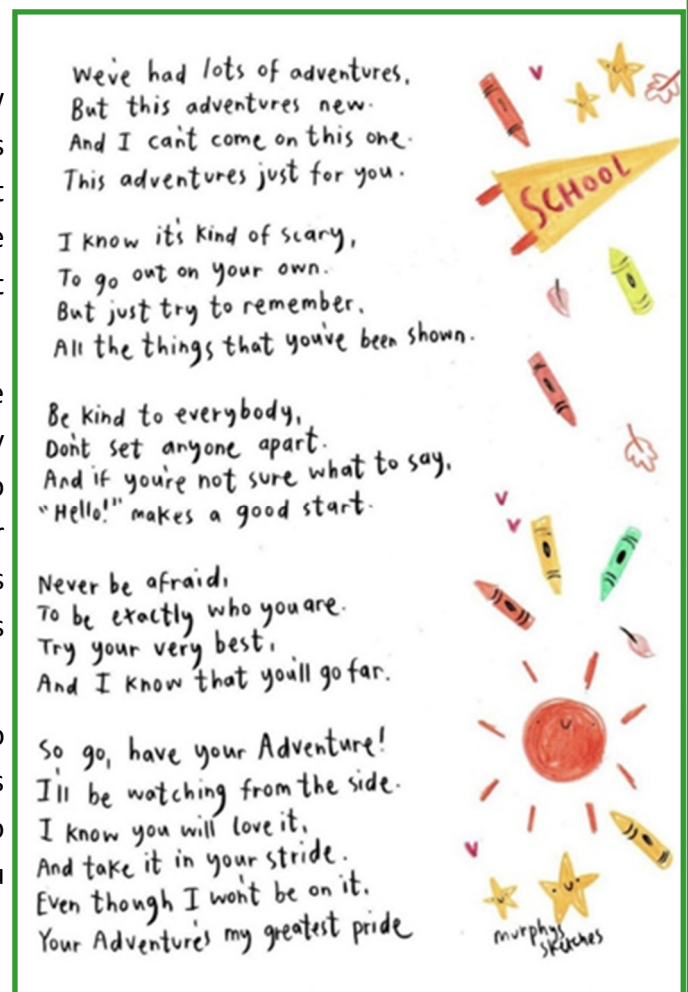 We've had lots of adventures,
But this adventures new.
And I can't come on this one.
This adventures just for you.
I know it's kind of scary,
To go out on your own.
But just try to remember,
All the things that you've been shown.
Be kind to everybody,
Don't set anyone apart.
And if you're not sure what to say,
"Hello!" makes a good start.
Never be afraid,
To be exactly who you are.
Try your very best,
And I know that you'll go far.
So go, have your Adventure!
I'll be watching from the side.
I know you will love it,
And take it in your stride.
Even though I won't be on it,
Your Adventure's my greatest pride
SCHOOL
murphys
sketches